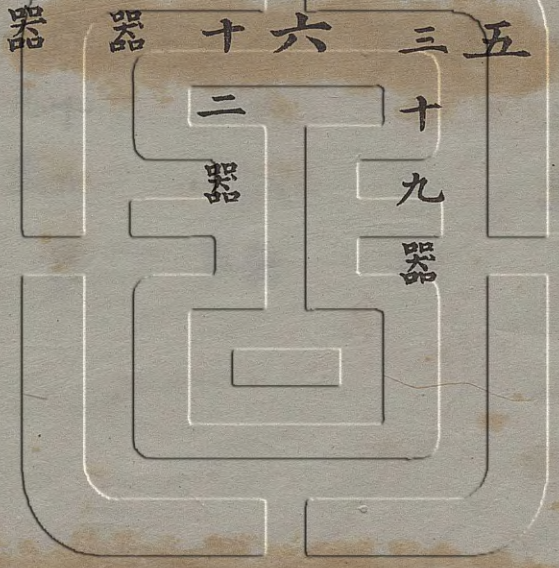 五
三十九器
六
十二器
器
器